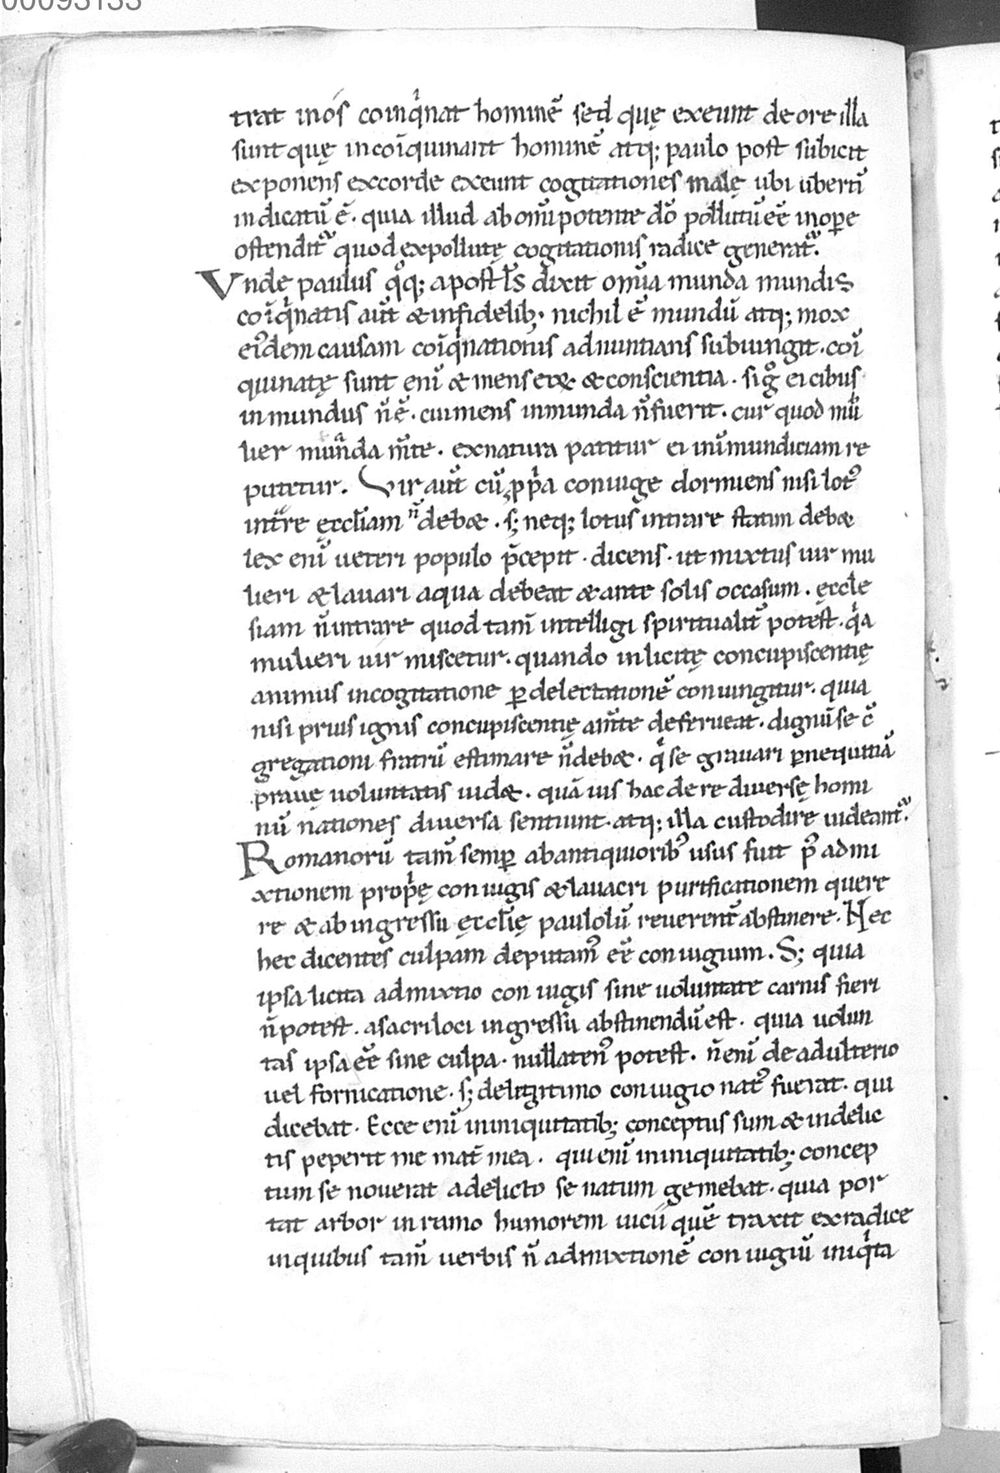 00093133
trat in ós coinq̇nat hominē sed quę exeunt de ore illa
sunt quę incoīquinant hominē atq; paulo post subicit
exponens excorde exeunt cogitationes malę ubi ubertī
indicatū ē. quia illud ab om̄ipotente dō pollutū eē inoꝑe
ostendit᷑ quod expollutę cogitationis radice generat᷑.
Vnde paulus q̊q; apostl̄s dixit om̄ia munda mundis
coīq̇natis aūt & infidelib; nichil ē mundū atq; mox
eīdem causam coīq̇nationis adnuntians subiungit. coī
quinatę sunt enī & mens eoꝝ & conscientia. si g̊ ei cibus
inmundus n̄ ē. cui mens inmunda n̄ fuerit. cur quod mū
lier munda m̄te. exnatura patitur ei inīmundiciam re
putetur. Vir aūt cū ꝓpͥa coniuge dormiens nisi lot᷒
intͣre ęccl̄iam n̄ deb&. s; neq; lotus intrare statim deb&
lex enī ueteri populo p̄cepit. dicens. ut mixtus uir mu
lieri & lauari aqua debeat & ante solis occasum. ęccle
siam n̄ intrare quod tam̄ intelligi spiritualit̄ potest. qͥa
mulieri uir miscetur. quando inlicitę concupiscentię
animus incogitatione ꝑ delectationē coniungitur. quia
nisi prius ignis concupiscentię am̄te deferueat. dignū se c̄
gregationi fratrū estimare n̄ deb&. qͥ se grauari ꝑ nequitiā
prauę uoluntatis uid&. quāuis hac de re diuersę homi
nū nationes diuersa sentiunt. atq; illa custodire uideant᷑.
Romanorū tam̄ semꝑ abantiquiorib᷒ usus fuit p᷒ admi
xtionem propͥę coniugis & lauacri purificationem quere
re & ab ingressu ęccl̄ię paululū reuerent̄ abstinere. Nec
hec dicentes culpam deputam᷒ eē coniugium. S; quia
ipsa licita admixtio coniugis sine uoluntate carnis fieri
n̄ potest. asacri loci ingressu abstinendū est. quia uolun
tas ipsa eē sine culpa. nullaten᷒ potest. n̄ enī de adulterio
uel fornicatione. s; delegitimo coniugio nat᷒ fuerat. qui
dicebat. Ecce enī ininiquitatib; conceptus sum & indelic
tis peperit me mat̄ mea. qui enī ininiquitatib; concep
tum se nouerat adelicto se natum gemebat. quia por
tat arbor in ramo humorem uicii quē traxit exradice
inquibus tam̄ uerbis n̄ admixtionē coniugiū iniqͥta